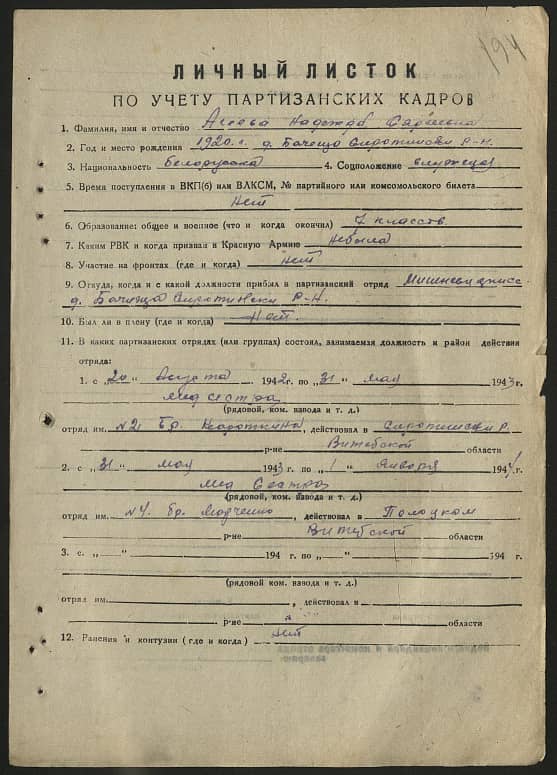 194
ЛИЧНЫЙ ЛИСТОК
ПО УЧЕТУ ПАРТИЗАНСКИХ КАДРОВ
1. Фамилия, имя и отчество Агеева Надежда
2. Год и место рождения 1920 г. д. Бочеща Сиротински Р-Н.
3. Национальность белоруска 4. Соцположение служещая
5. Время поступления в ВКП(б) или ВЛКСМ, № партийного или комсомольского билета
Нет
6. Образование: общее и военное (что и когда окончил) 7 классов
7. Каким РВК и когда призван в Красную Армию Небыла
8. Участие на фронтах (где и когда) Нет
9. Откуда, когда и с какой должности прибыл в партизанский отряд
д. Бочища Сиротински Р-Н.
10. Был ли в плену (где и когда) Нет.
11. В каких партизанских отрядах (или группах) состоял, занимаемая должность и район действия
отряда:
1. с „20“ Августа 1942 г. по „31“ мая 1943 г.
мед сестра
(рядовой, ком. взвода и т. д.)
отряд им. №2 бр. Короткина, действовал в Сиротински р.
р-не Витебской области
2. с „31“ мая 1943 г. по „1“ Января 1944 г.
мед Сестра
(рядовой, ком. взвода и т. д.)
отряд им. №4. бр. Мадченко, действовал в Полоцком
р-не Витебской области
3. с „ “ 194 г. по „ “ 194 г.
(рядовой, ком. взвода и т. д.)
отряд им. , действовал в
р-не области
12. Ранения и контузии (где и когда) Нет